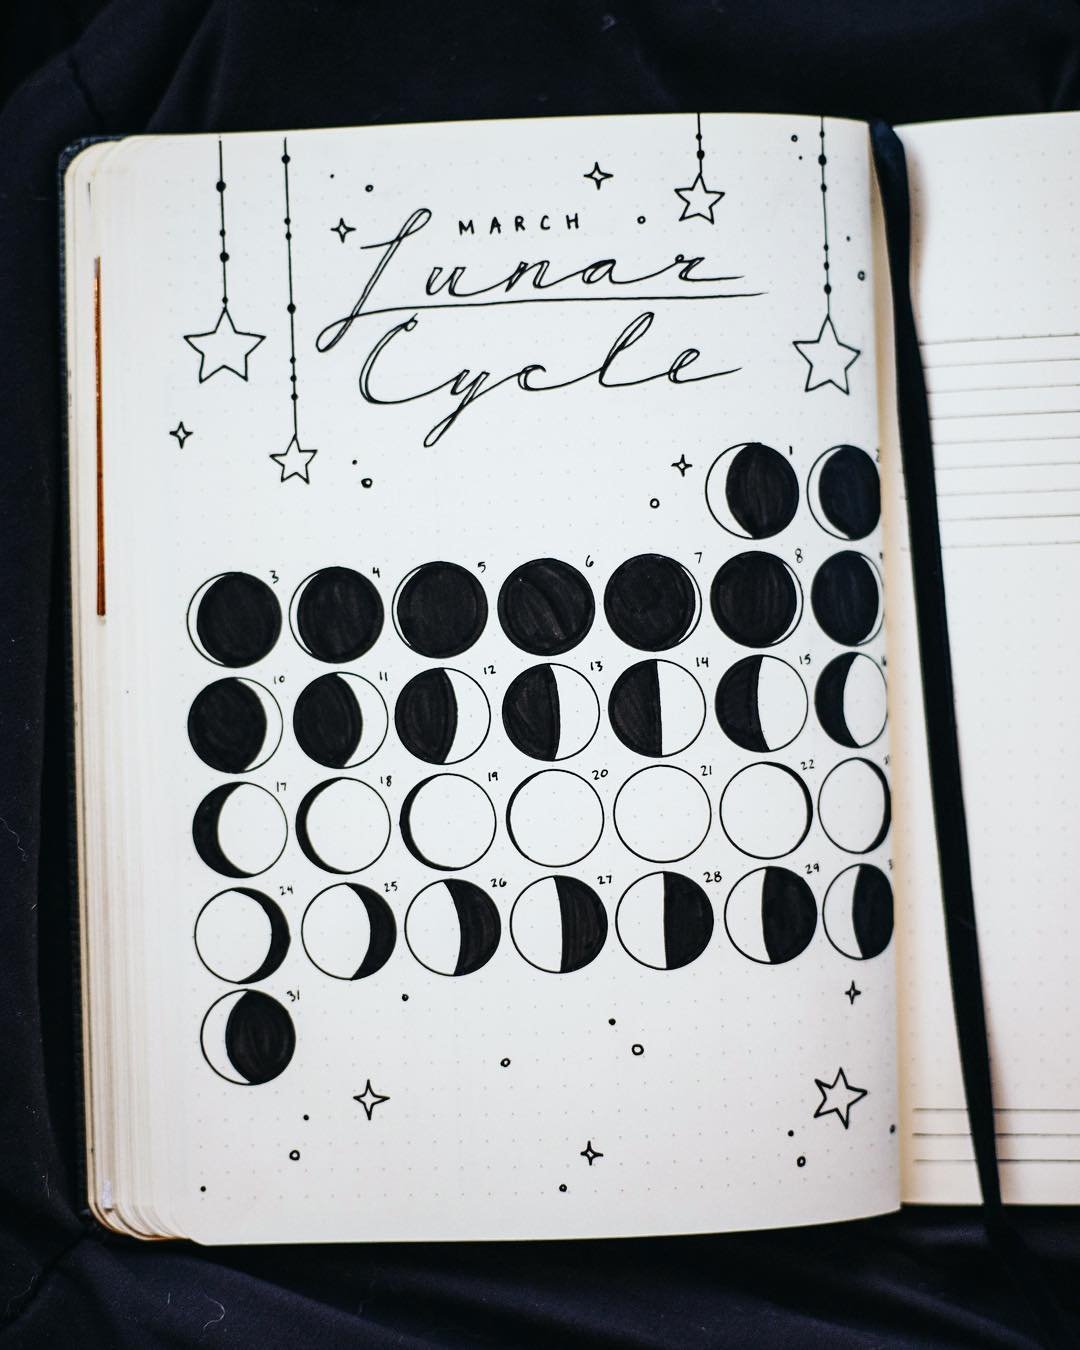 MARCH
Lunar
Cycle
1
3 4 5 6 7 8
10 11 12 13 14 15
17 18 19 20 21 22
24 25 26 27 28 29
31